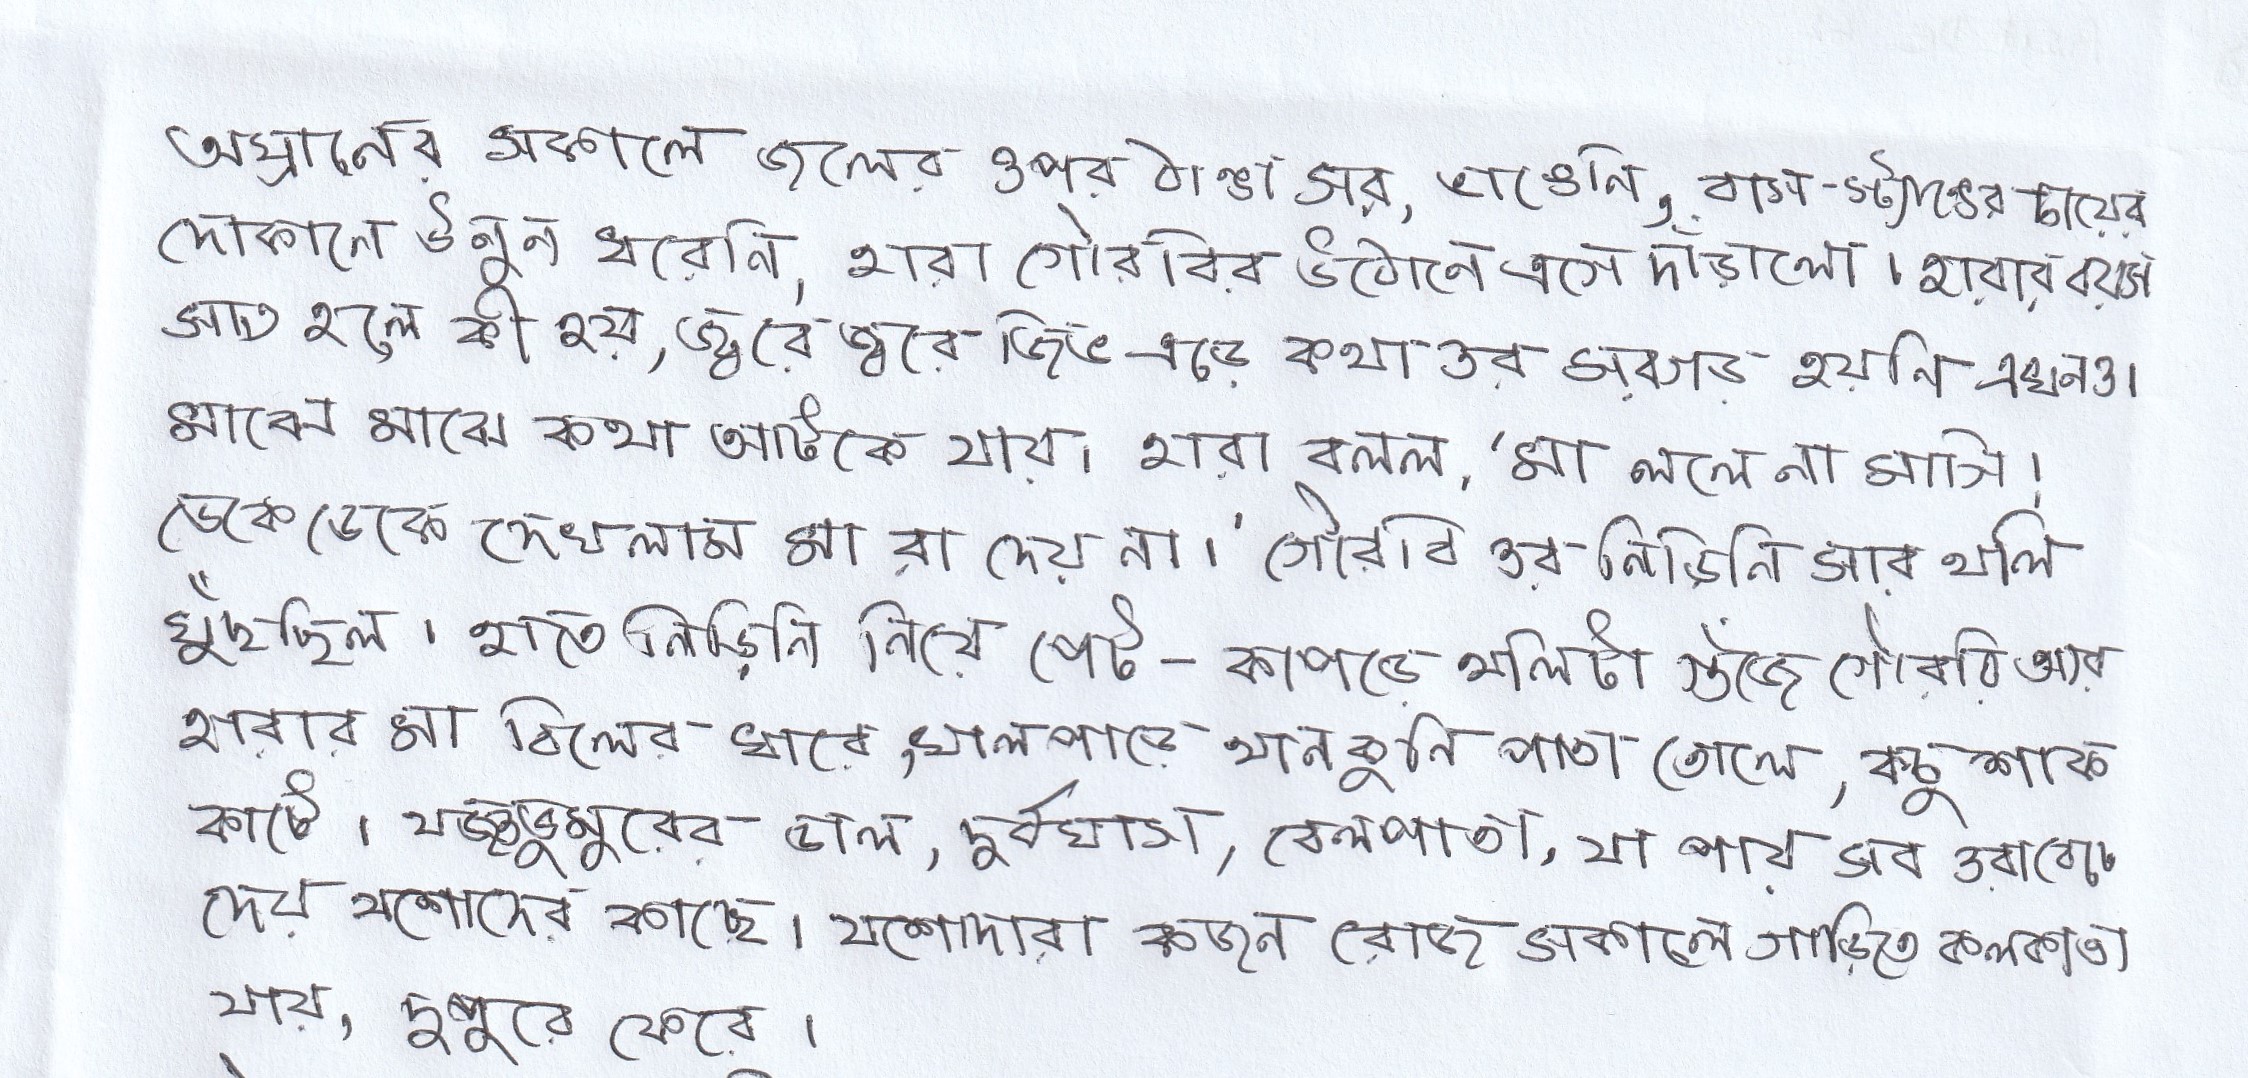 অঘ্রানের সকালে জলের ওপর ঠাণ্ডা সর, ভাঙেনি, বাস-স্ট্যাণ্ডের চায়ের
দোকানে উনুন ধরেনি, হারা গৌরবির উঠোনে এসে দাঁড়ালো। হারার বয়স
সাত হলে কী হয়, জ্বরে জ্বরে জিভ এড়ে কথা ওর সরগড় হয়নি এখনও।
মাঝে মাঝে কথা আটকে যায়। হারা বলল, 'মা ললে না মাসি!
ডেকে ডেকে দেখলাম মা রা দেয় না।' গৌরবি ওর নিড়িনি আর থলি
খুঁজছিল। হাতে নিড়িনি নিয়ে পেট-কাপড়ে থলিটা গুঁজে গৌরবি আর
হারার মা বিলের ধারে, খালপাড়ে থানকুনি পাতা তোলে, কচু শাক
কাটে। যজ্ঞডুমুরের ডাল, দুর্বঘাস, বেলপাতা, যা পায় সব ওরা বেচে
দেয় যশোদের কাছে। যশোদারা কজন রোজ সকালে গাড়িতে কলকাতা
যায়, দুপুরে ফেরে।